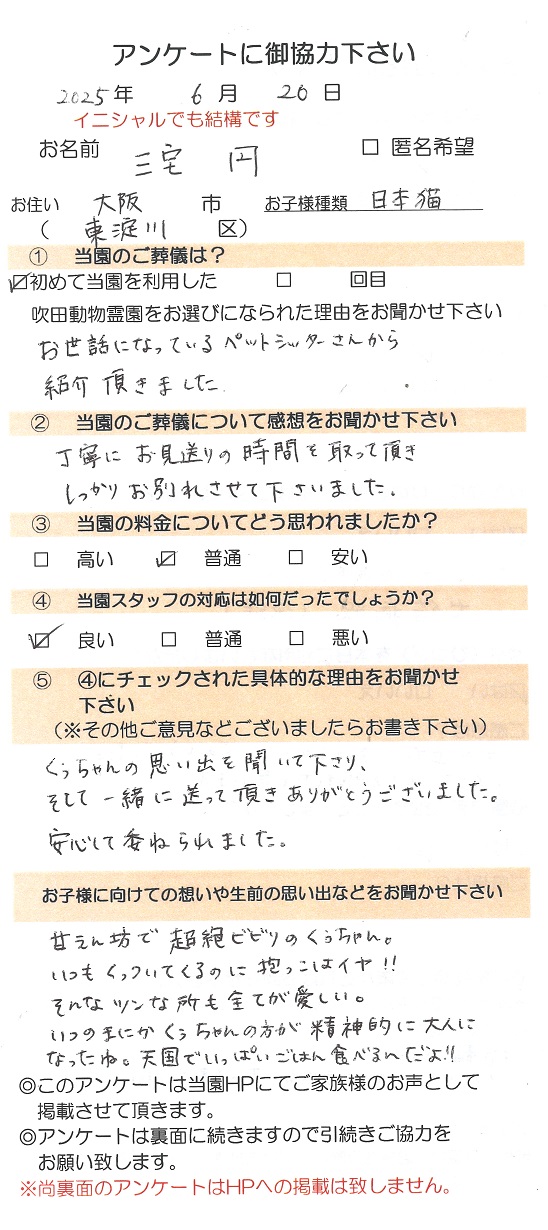 アンケートに御協力下さい
2025年 6月 20日
イニシャルでも結構です
お名前 三宅 円 □ 匿名希望
お住い 大阪 市 お子様種類 日本猫
( 東淀川 区)
① 当園のご葬儀は？
☑初めて当園を利用した □ 回目
吹田動物霊園をお選びになられた理由をお聞かせ下さい
お世話になっているペットシッターさんから
紹介頂きました.
② 当園のご葬儀について感想をお聞かせ下さい
丁寧にお見送りの時間を取って頂き
しっかりお別れさせて下さいました.
③ 当園の料金についてどう思われましたか？
□ 高い ☑ 普通 □ 安い
④ 当園スタッフの対応は如何だったでしょうか？
☑ 良い □ 普通 □ 悪い
⑤ ④にチェックされた具体的な理由をお聞かせ
下さい
(※その他ご意見などございましたらお書き下さい)
くぅちゃんの思い出を聞いて下さり、
そして一緒に送って頂きありがとうございました。
安心して委ねられました。
お子様に向けての想いや生前の思い出などをお聞かせ下さい
甘えん坊で超絶ビビリのくぅちゃん。
いつもくっついてくるのに抱っこはイヤ!!
そんなツンな所も全てが愛しい。
いつのまにかくぅちゃんの方が精神的に大人に
なったね。天国でいっぱいごはん食べるんだよ!!
◎このアンケートは当園HPにてご家族様のお声として
掲載させて頂きます。
◎アンケートは裏面に続きますので引続きご協力を
お願い致します。
※尚裏面のアンケートはHPへの掲載は致しません。